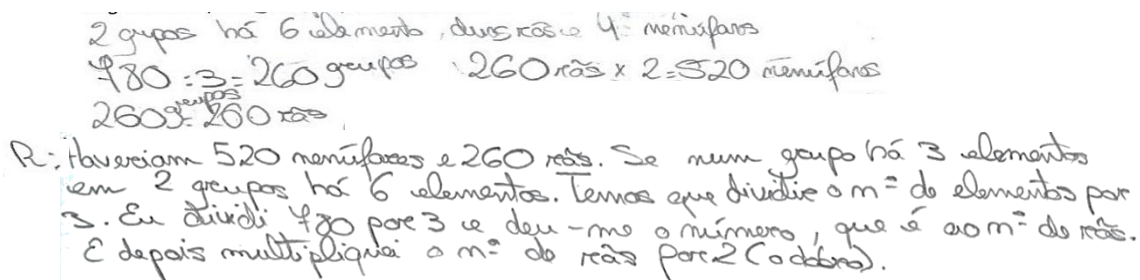 2 gupos há 6 elemento, duas rãs e 4 nenúfars
780 : 3 = 260 grupos 260 rãs x 2 = 520 nenúfars
260g = 260 rãs
grupos
R: Haveriam 520 nenúfares e 260 rãs. Se num grupo há 3 elementos
em 2 grupos há 6 elementos. Temos que dividir o nº de elementos por
3. Eu dividi 780 por 3 e deu-me o número, que é ao nº de rãs.
E depois multipliquei o nº de rãs por 2 (o dobro).